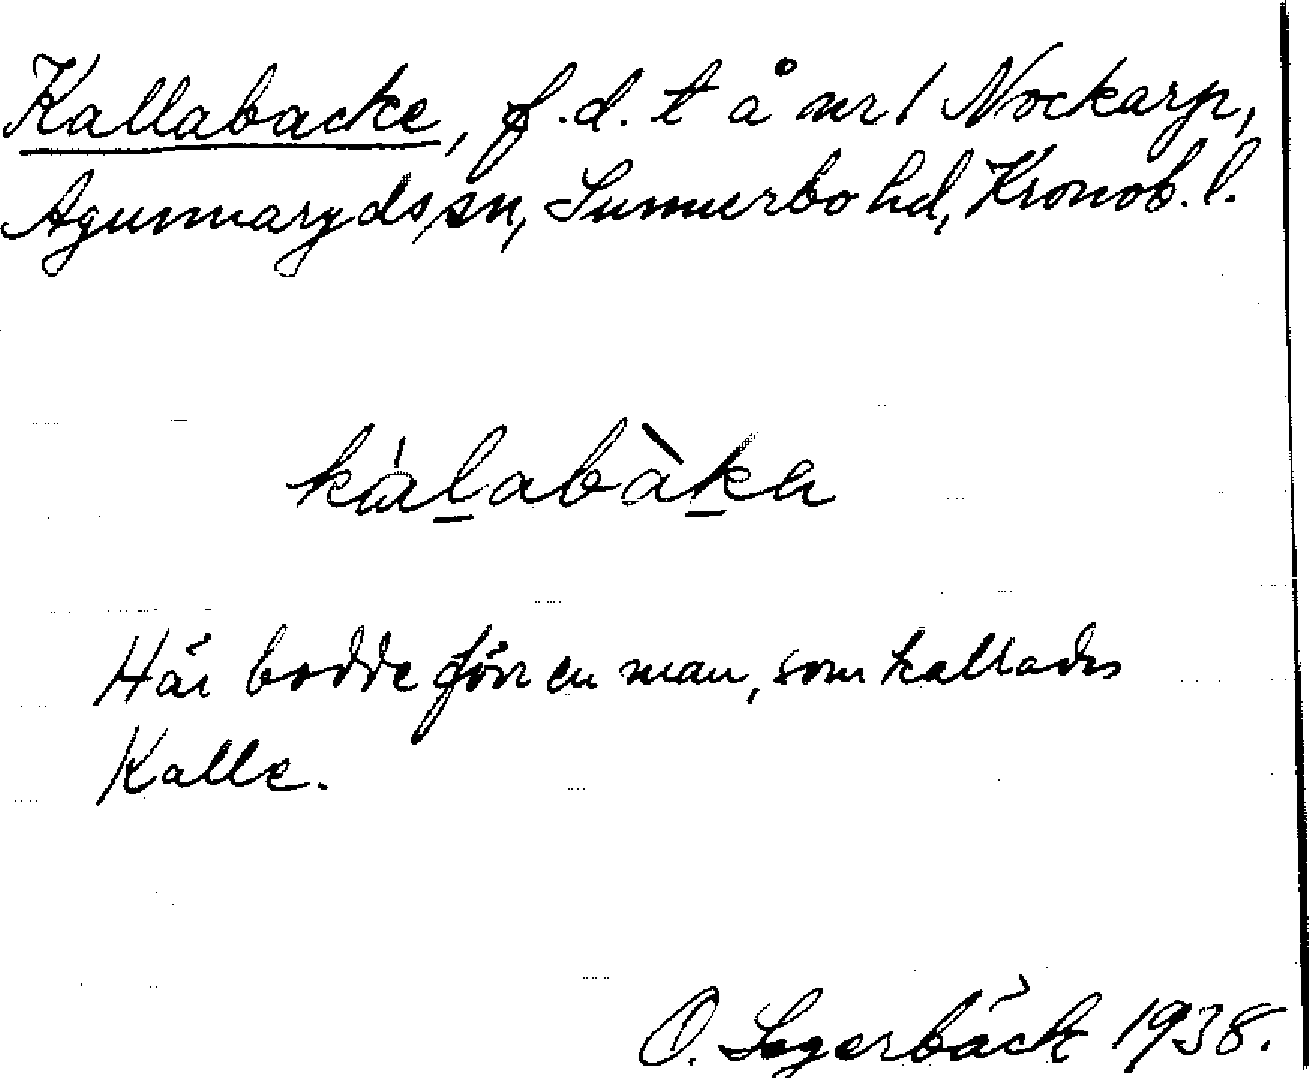 Kallabacke, f.d. t å nr 1 Nockarp,
Agunnaryds sn, Sunnerbo hd, Kronob. l.
kálabàka
Här bodde förr en man, som kallades
Kalle.
O. Segerbäck 1938.